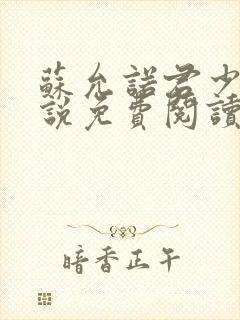 蘇允諾君少
說免費閱讀
暗香正午